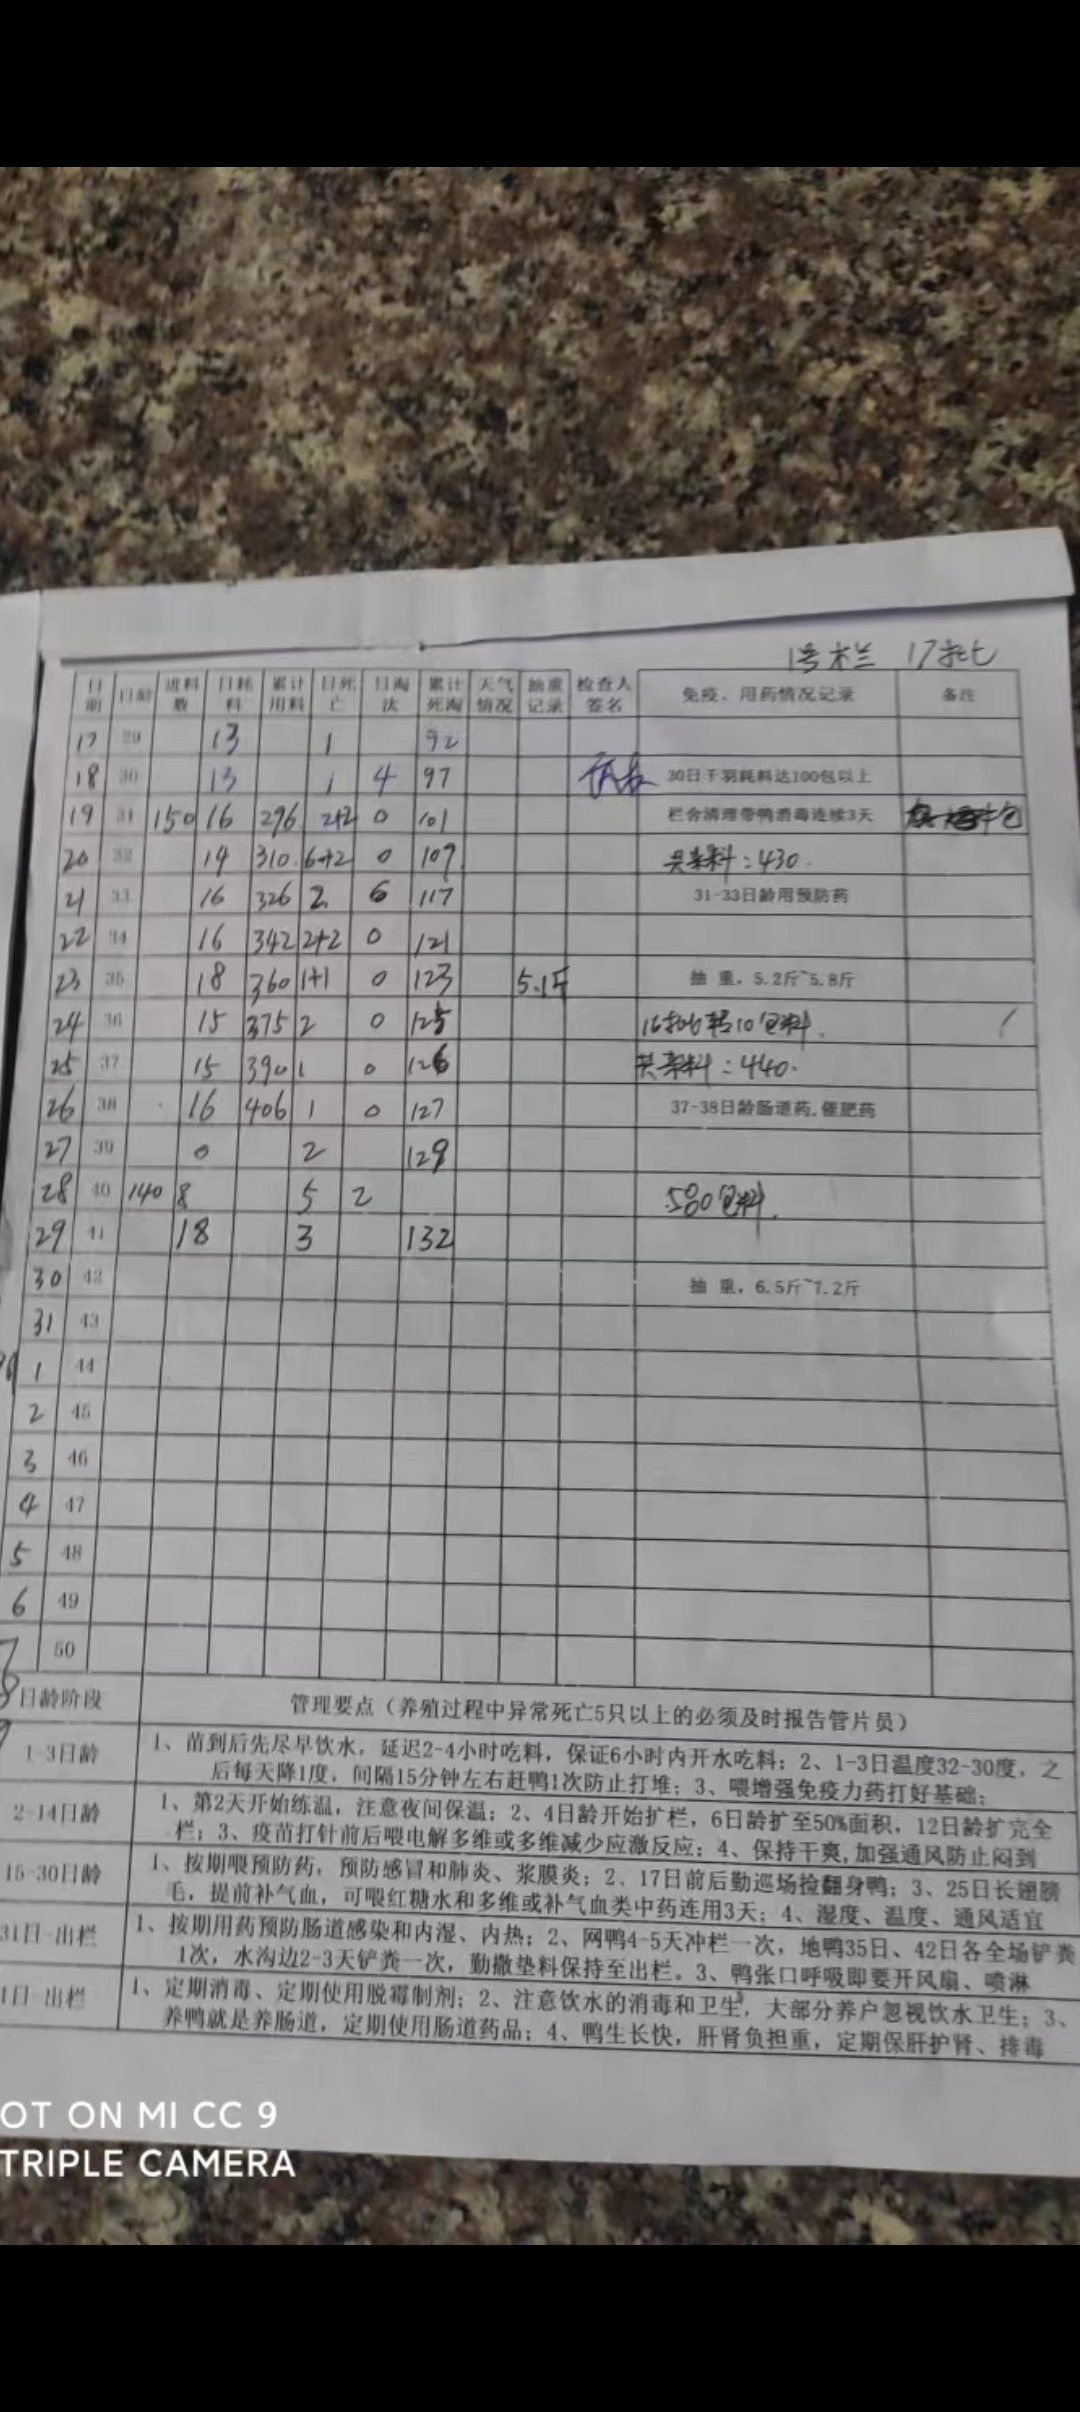 1号栏 17批
日期 日龄 进料数 日耗料 累计用料 日死亡 日淘汰 累计死淘 天气情况 抽重记录 检查人签名 免疫、用药情况记录 备注
17 29 13 1 92
18 30 13 1 4 97 30日千羽耗料达100包以上
19 31 150 16 296 2+2 0 101 栏舍清理带鸭消毒连续3天
20 32 14 310 6+2 0 109 共来料:430
21 33 16 326 2 6 117 31-33日龄用预防药
22 34 16 342 2+2 0 121
23 35 18 360 1+1 0 123 5.1斤 抽 重，5.2斤~5.8斤
24 36 15 375 2 0 125 16批转10包料
25 37 15 390 1 0 126 共来料:440
26 38 16 406 1 0 127 37-38日龄肠道药，催肥药
27 39 0 2 129
28 40 140 8 5 2 580包料
29 41 18 3 132
30 42 抽 重，6.5斤~7.2斤
31 43
1 44
2 45
3 46
4 47
5 48
6 49
7 50
日龄阶段 管理要点（养殖过程中异常死亡5只以上的必须及时报告管片员）
1-3日龄 1、苗到后先尽早饮水，延迟2-4小时吃料，保证6小时内开水吃料；2、1-3日温度32-30度，之
后每天降1度，间隔15分钟左右赶鸭1次防止打堆；3、喂增强免疫力药打好基础；
2-14日龄 1、第2天开始练温，注意夜间保温；2、4日龄开始扩栏，6日龄扩至50%面积，12日龄扩完全
栏；3、疫苗打针前后喂电解多维或多维减少应激反应；4、保持干爽，加强通风防止闷到
15-30日龄 1、按期喂预防药，预防感冒和肺炎、浆膜炎；2、17日前后勤巡场捡翻身鸭；3、25日长翅膀
毛，提前补气血，可喂红糖水和多维或补气血类中药连用3天；4、湿度、温度、通风适宜
31日-出栏 1、按期用药预防肠道感染和内湿、内热；2、网鸭4-5天冲栏一次，地鸭35日、42日各全场铲粪
1次，水沟边2-3天铲粪一次，勤撒垫料保持至出栏。3、鸭张口呼吸即要开风扇、喷淋
1日-出栏 1、定期消毒、定期使用脱霉制剂；2、注意饮水的消毒和卫生，大部分养户忽视饮水卫生；3、
养鸭就是养肠道，定期使用肠道药品；4、鸭生长快，肝肾负担重，定期保肝护肾、排毒
OT ON MI CC 9
TRIPLE CAMERA